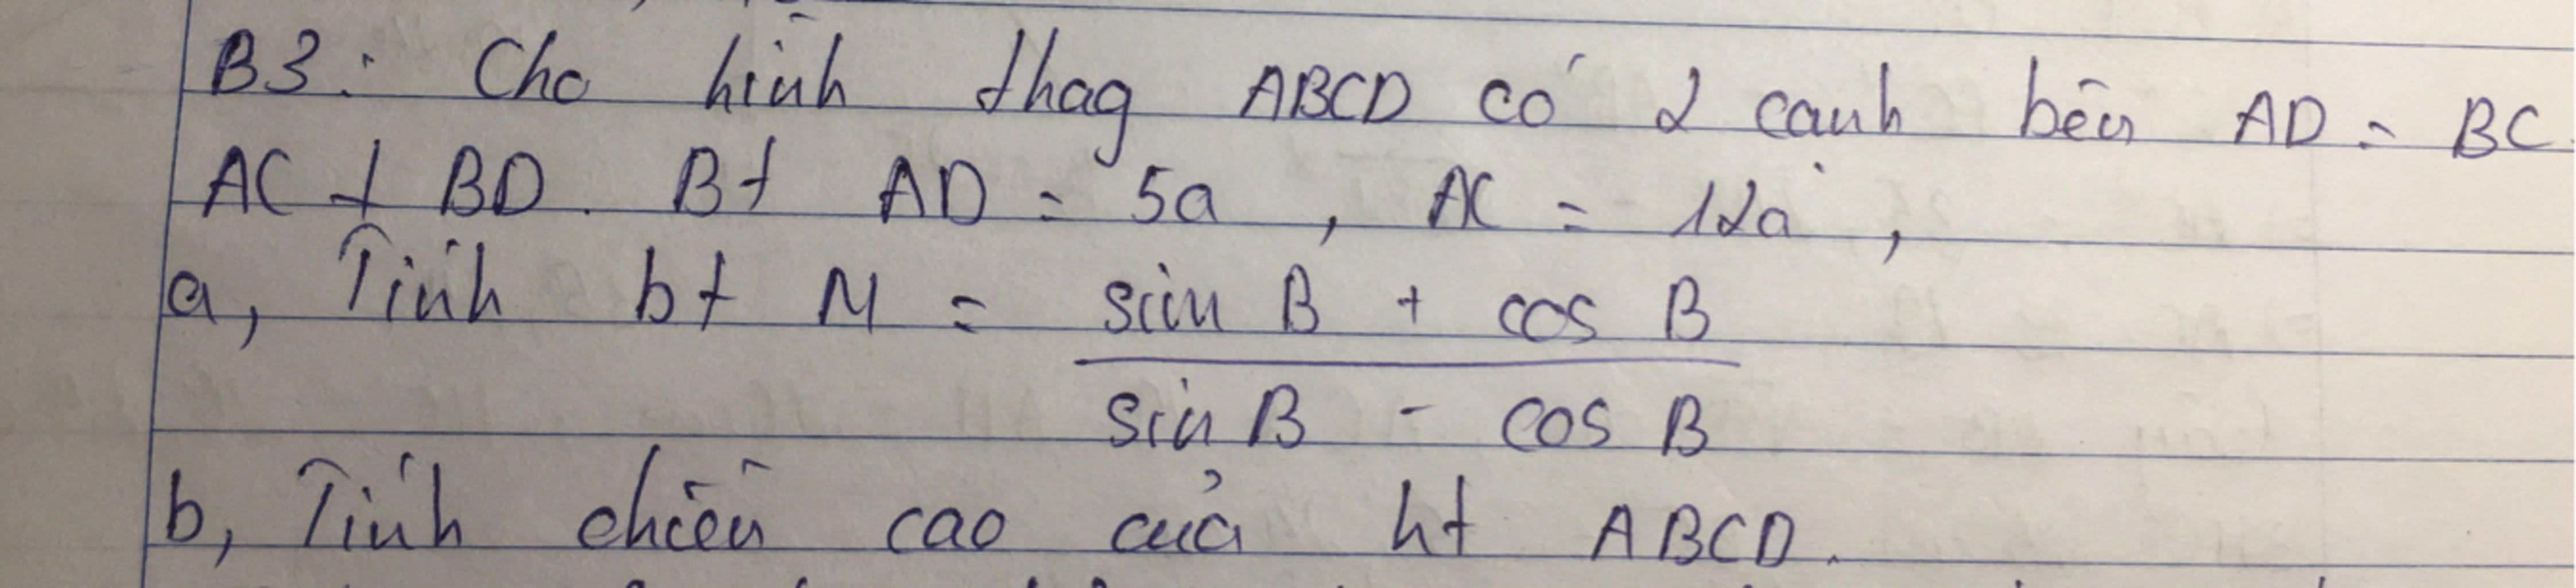 B3: Cho hình thag ABCD có 2 cạnh bên AD = BC
AC ⊥ BD. Bt AD = 5a, AC = 12a,
a, Tính bt M = sin B + cos B
sin B - cos B
b, Tính chiều cao của ht ABCD.